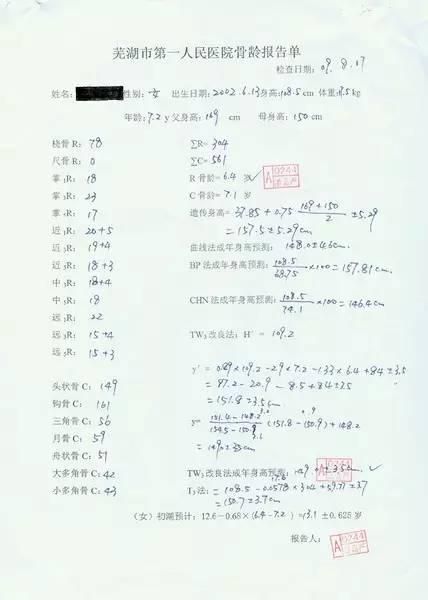 芜湖市第一人民医院骨龄报告单
检查日期: 09. 8. 17
姓名: 性别: 女 出生日期: 2002. 6. 13 身高: 108.5 cm 体重: kg
年龄: 7.2 y 父身高: 169 cm 母身高: 150 cm
桡骨 R: 78 ΣR= 304
尺骨 R: 0 ΣC= 561
掌₁R: 18 R 骨龄= 6.4 岁✓
掌₃R: 23 C 骨龄= 7.1 岁
掌₅R: 17 遗传身高= 37.85 + 0.75 (169+150)/2 ±5.29
近₁R: 20+5 = 157.5 ± 5.29cm
近₃R: 19+4 曲线法成年身高预测: 148.0±4.6cm.
近₅R: 18+3 BP 法成年身高预测: 108.5/68.75 ×100 = 157.81 cm.
中₃R: 18+4
中₅R: 18 CHN 法成年身高预测: 108.5/74.1 ×100 = 146.4cm
远₁R: 22
远₃R: 15+4 TW₃ 改良法: H′ = 109.2
远₅R: 15+3
y′ = 0.89×109.2 -2.9×7.2 -1.33×6.4 +84 ±3.5
头状骨 C: 149 = 97.2 - 20.9 - 8.5 +84 ±3.5
钩骨 C: 161 = 151.8 ±3.5cm
三角骨 C: 56 y= (151.8 - 150.9) + 148.2
月骨 C: 59
舟状骨 C: 51
大多角骨 C: 42 TW₃ 改良法成年身高预测: 149. ±3.5cm. ✓
小多角骨 C: 43 T₃法: = 108.5 - 0.0578 × 304 + 59.71 ±3.7
= 150.7 ± 3.7cm
(女) 初潮预计: 12.6-0.68×(6.4-7.2) =13.1 ±0.625 岁
报告人:
A 0244